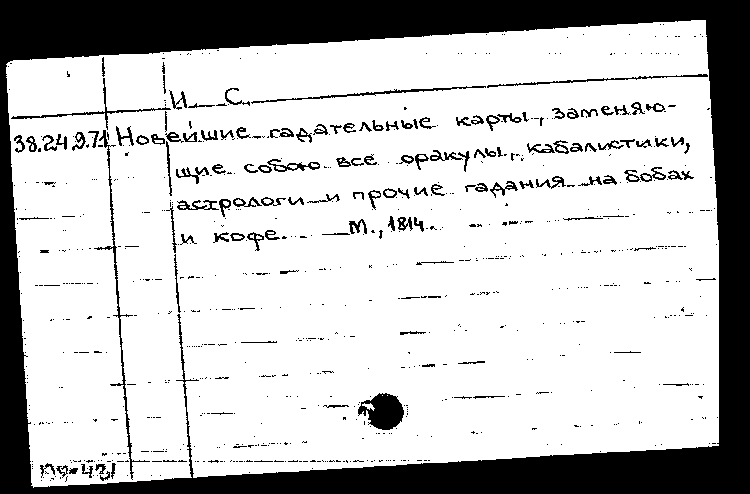 И. С.
38.24.9.71 Новейшие гадательные карты, заменяю-
щие собою все оракулы, кабалистики,
астрологи и прочие гадания на бобах
и кофе. М., 1814.